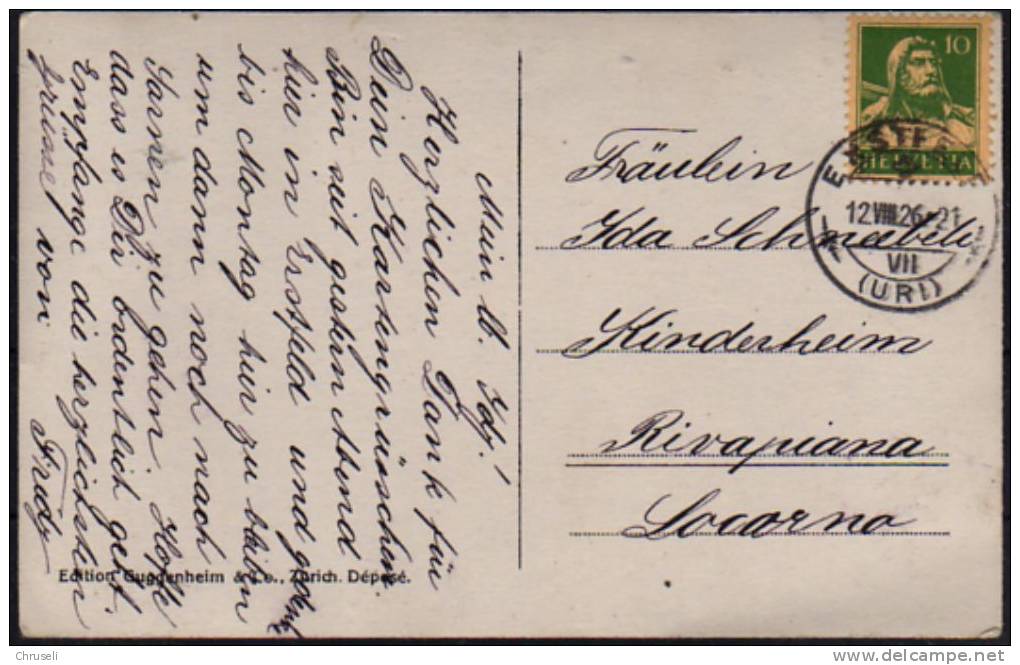 Mein lb. Idy!
Herzlichen Dank für
Dein Kartengrüsschen.
Bin seit gestern Abend
hier in Erstfeld und gedenke
bis Montag hier zu bleiben
um dann noch nach
Sarnen zu gehen. Hoffe
dass es Dir ordentlich geht.
Empfange die herzlichsten
Grüsse von
Trudy
Edition Guggenheim & Co., Zürich. Déposé.
10
HELVETIA
ERSTFELD
12.VIII.26.-21
VII
(URI)
Fräulein
Ida Schnebeli
Kinderheim
Rivapiana
Locarno
Chruseli
delcampe.net